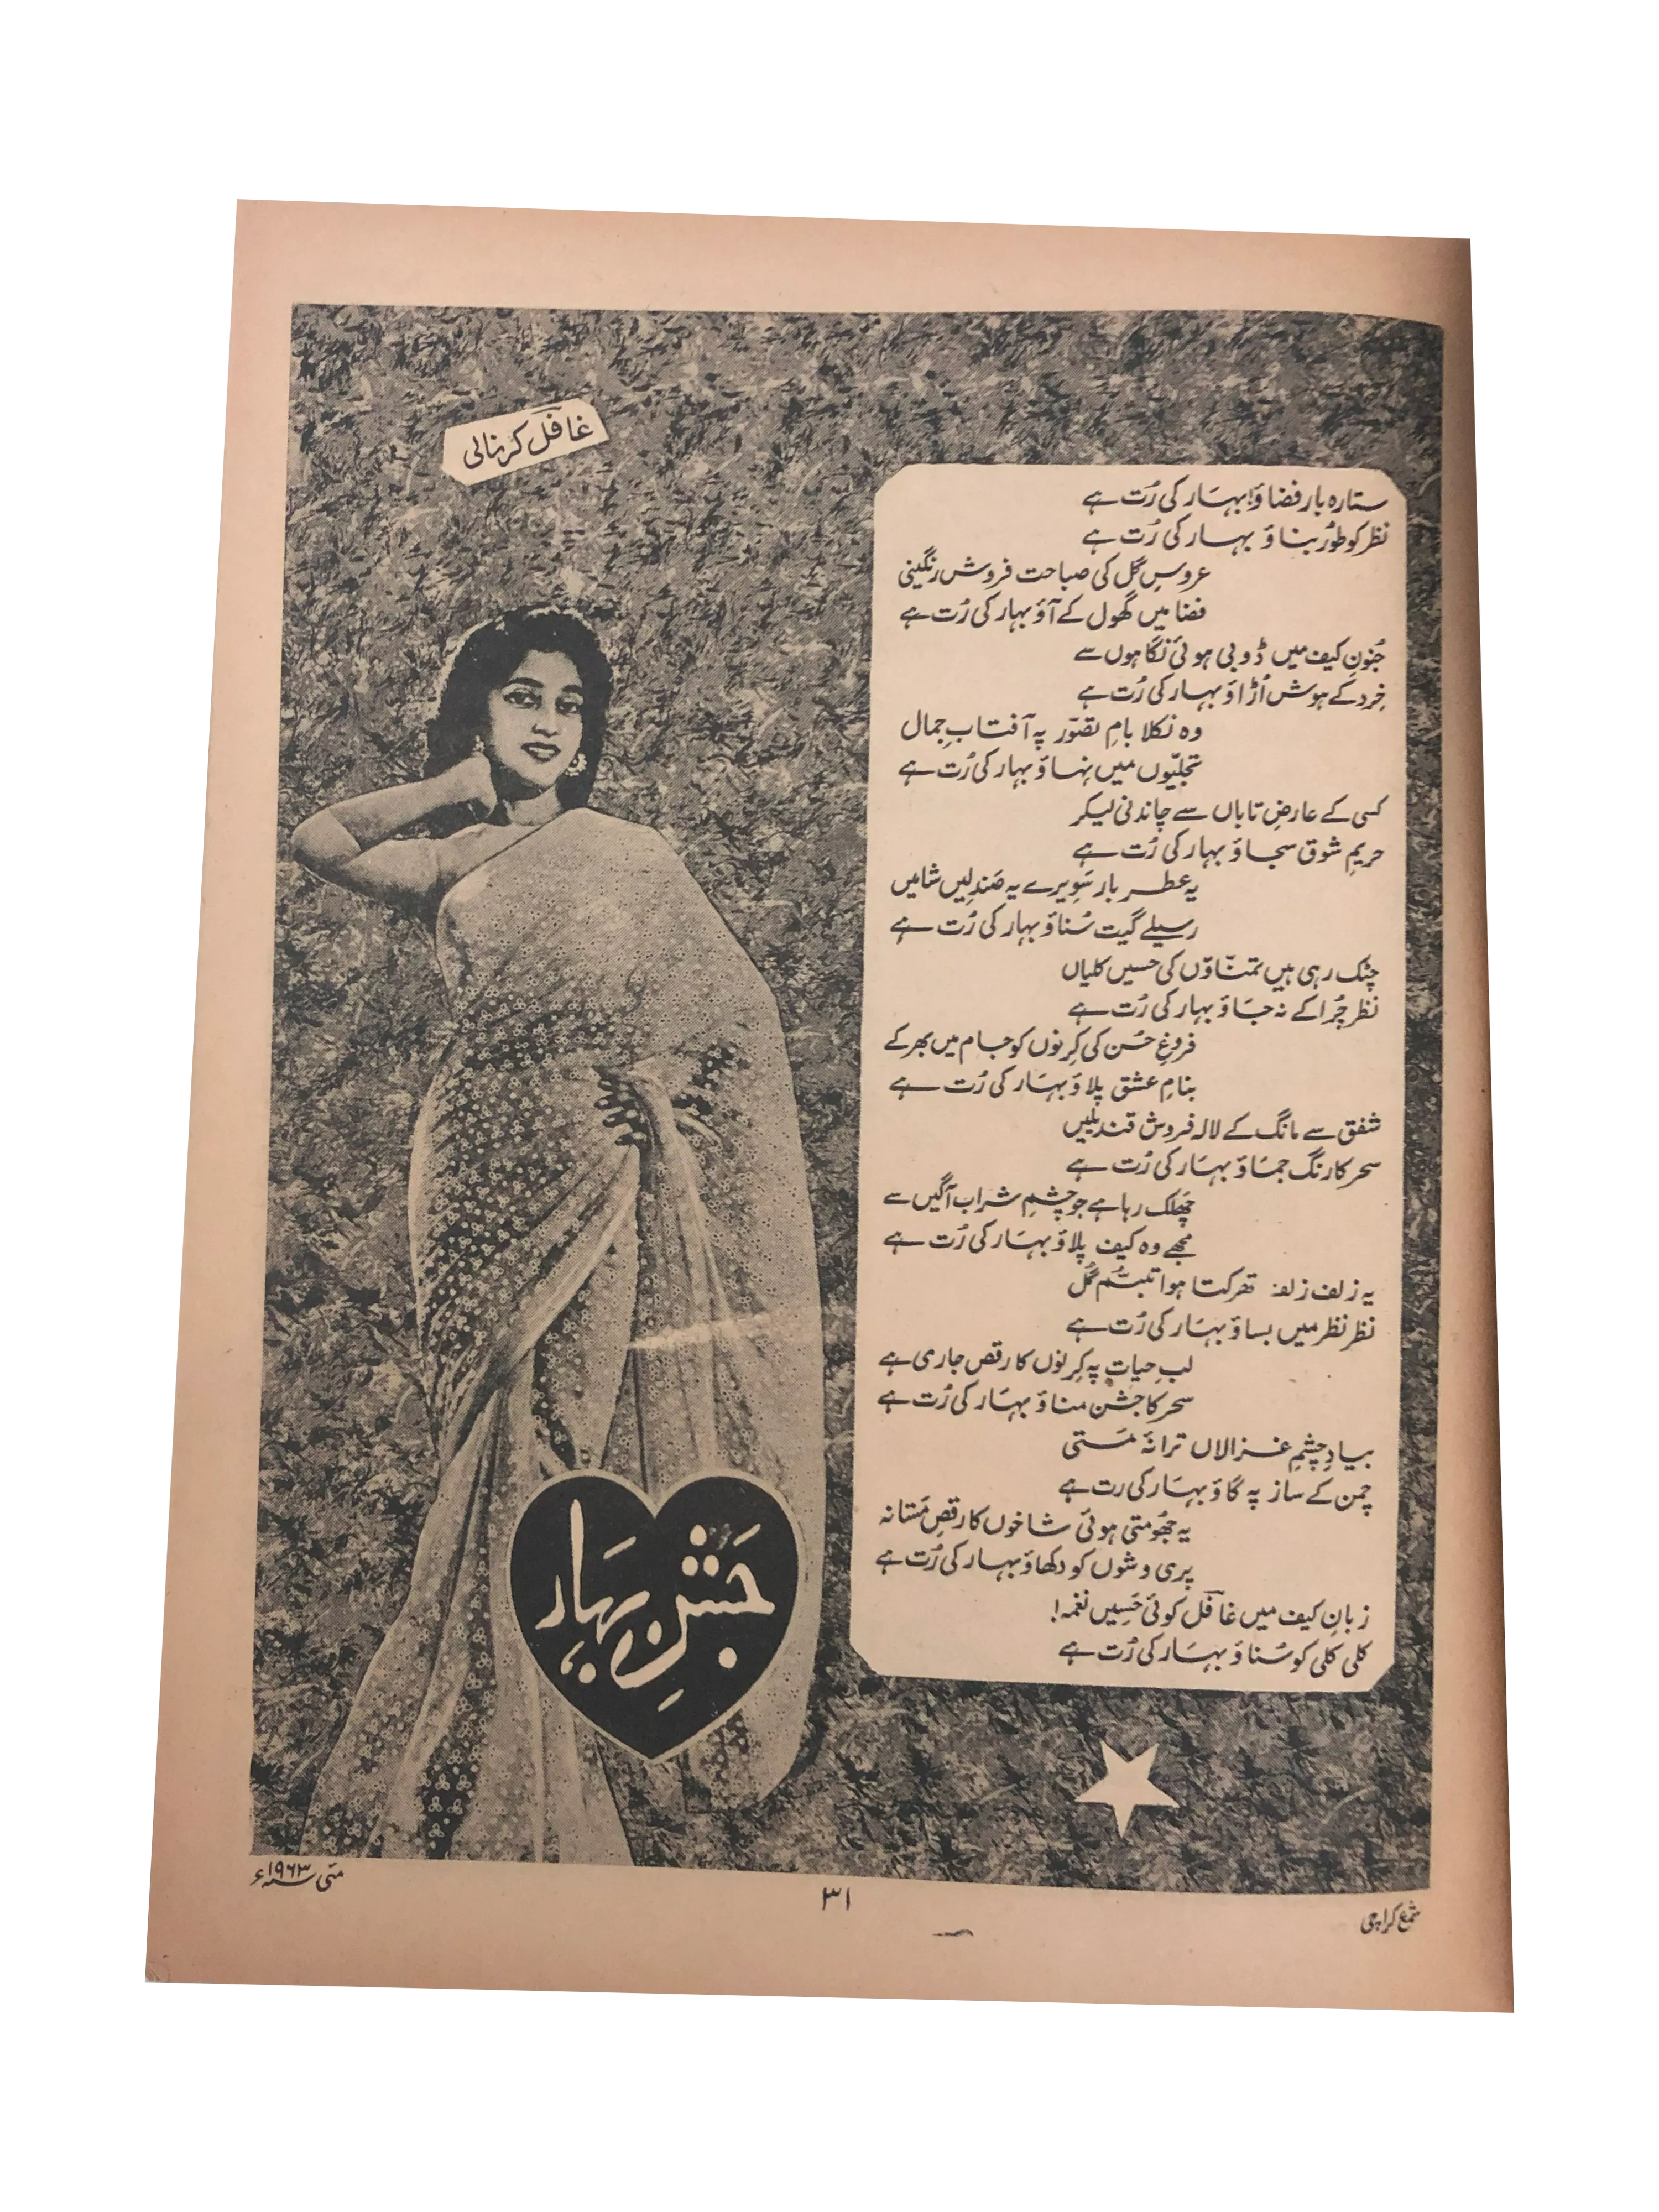 غافل کرنالی
ستارہ بار فضاؤ! بہار کی رُت ہے
نظر کو طُور بناؤ بہار کی رُت ہے
عروسِ گل کی صباحت فروش رنگینی
فضا میں گھول کے آؤ بہار کی رُت ہے
جُنونِ کیف میں ڈوبی ہوئی نگاہوں سے
خِرد کے ہوش اُڑاؤ بہار کی رُت ہے
وہ نکلا بامِ تصوّر پہ آفتابِ جمال
تجلیّوں میں نہاؤ بہار کی رُت ہے
کسی کے عارضِ تاباں سے چاندنی لیکر
حریمِ شوق سجاؤ بہار کی رُت ہے
یہ عطر بار سَویرے یہ صَندلِیں شامیں
رسیلے گیت سُناؤ بہار کی رُت ہے
چٹک رہی ہیں تمنّاؤں کی حسیں کلیاں
نظر چُرا کے نہ جَاؤ بہار کی رُت ہے
فروغِ حُسن کی کِرنوں کو جام میں بھر کے
بنامِ عشق پلاؤ بہَار کی رُت ہے
شفق سے مانگ کے لالہ فروش قندیلیں
سحر کا رنگ جمَاؤ بہَار کی رُت ہے
چَھلک رہا ہے جو چشمِ شراب آگیں سے
مجھے وہ کیف پلاؤ بہَار کی رُت ہے
یہ زلف زلف تھرکتا ہوا تبسّمِ گُل
نظر نظر میں بساؤ بہَار کی رُت ہے
لبِ حیات پہ کِرنوں کا رقص جاری ہے
سحر کا جشن مناؤ بہَار کی رُت ہے
بیادِ چشمِ غزالاں ترانۂ مَستی
چمن کے ساز پہ گاؤ بہَار کی رت ہے
یہ جُھومتی ہوئی شاخوں کا رقصِ مَستانہ
پری وشوں کو دکھاؤ بہار کی رُت ہے
زبانِ کیف میں غافل کوئی حَسِیں نغمہ!
کلی کلی کو سُناؤ بہَار کی رُت ہے
جَشنِ بہَار
شمع کراچی
۳۱
مئی سنہ ۱۹۶۳ء